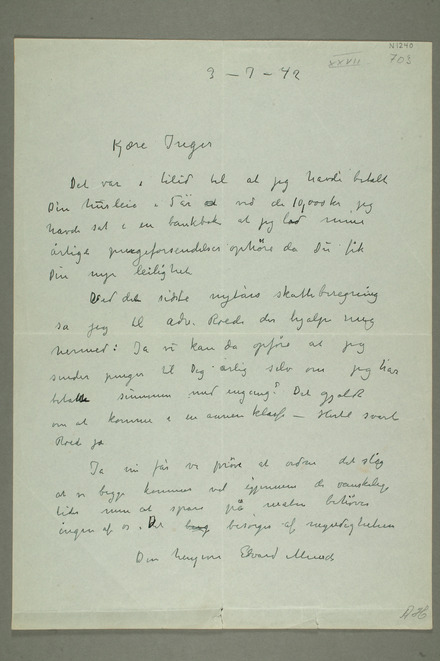 N1240
XXVII
703
3 – 7 – 42
Kjære Inger
Det var i tilid til at jeg havde betalt
Din husleie i 5 år ved de 10,000 kr jeg
havde sat i en bankbok at jeg lod mine
årlige pengeforsendelser ophøre da Du fik
Din nye leilighet
Ved den sidste nytårs skatteberegning
sa jeg til adv. Roede der hjalp meg
hermed: Ja vi kan da opføre at jeg
sender penger til Dig årlig selv om jeg har
betalt summen med engang? Det gjaldt
om at komme i en annen klasse –
svart
Roed ja
Ja nu får vi prøve at ordne det slig
at vi begge kommer vel igjennem de vanskelige
tider men at spare på maten behøver
ingen af os. Det besørges af myndighetene
Din hengivne Edvard Munch